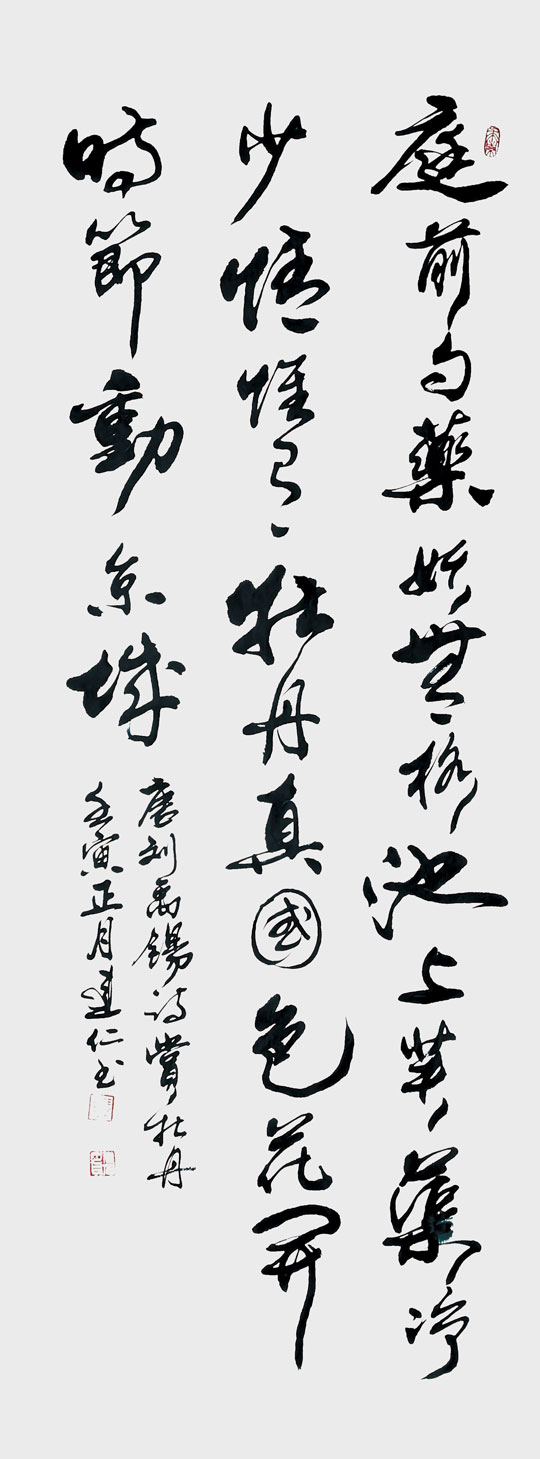 庭前勺藥妖無格池上芙蕖净
少情惟有牡丹真國色花開
時節動京城
唐刘禹錫诗賞牡丹
壬寅正月仁书